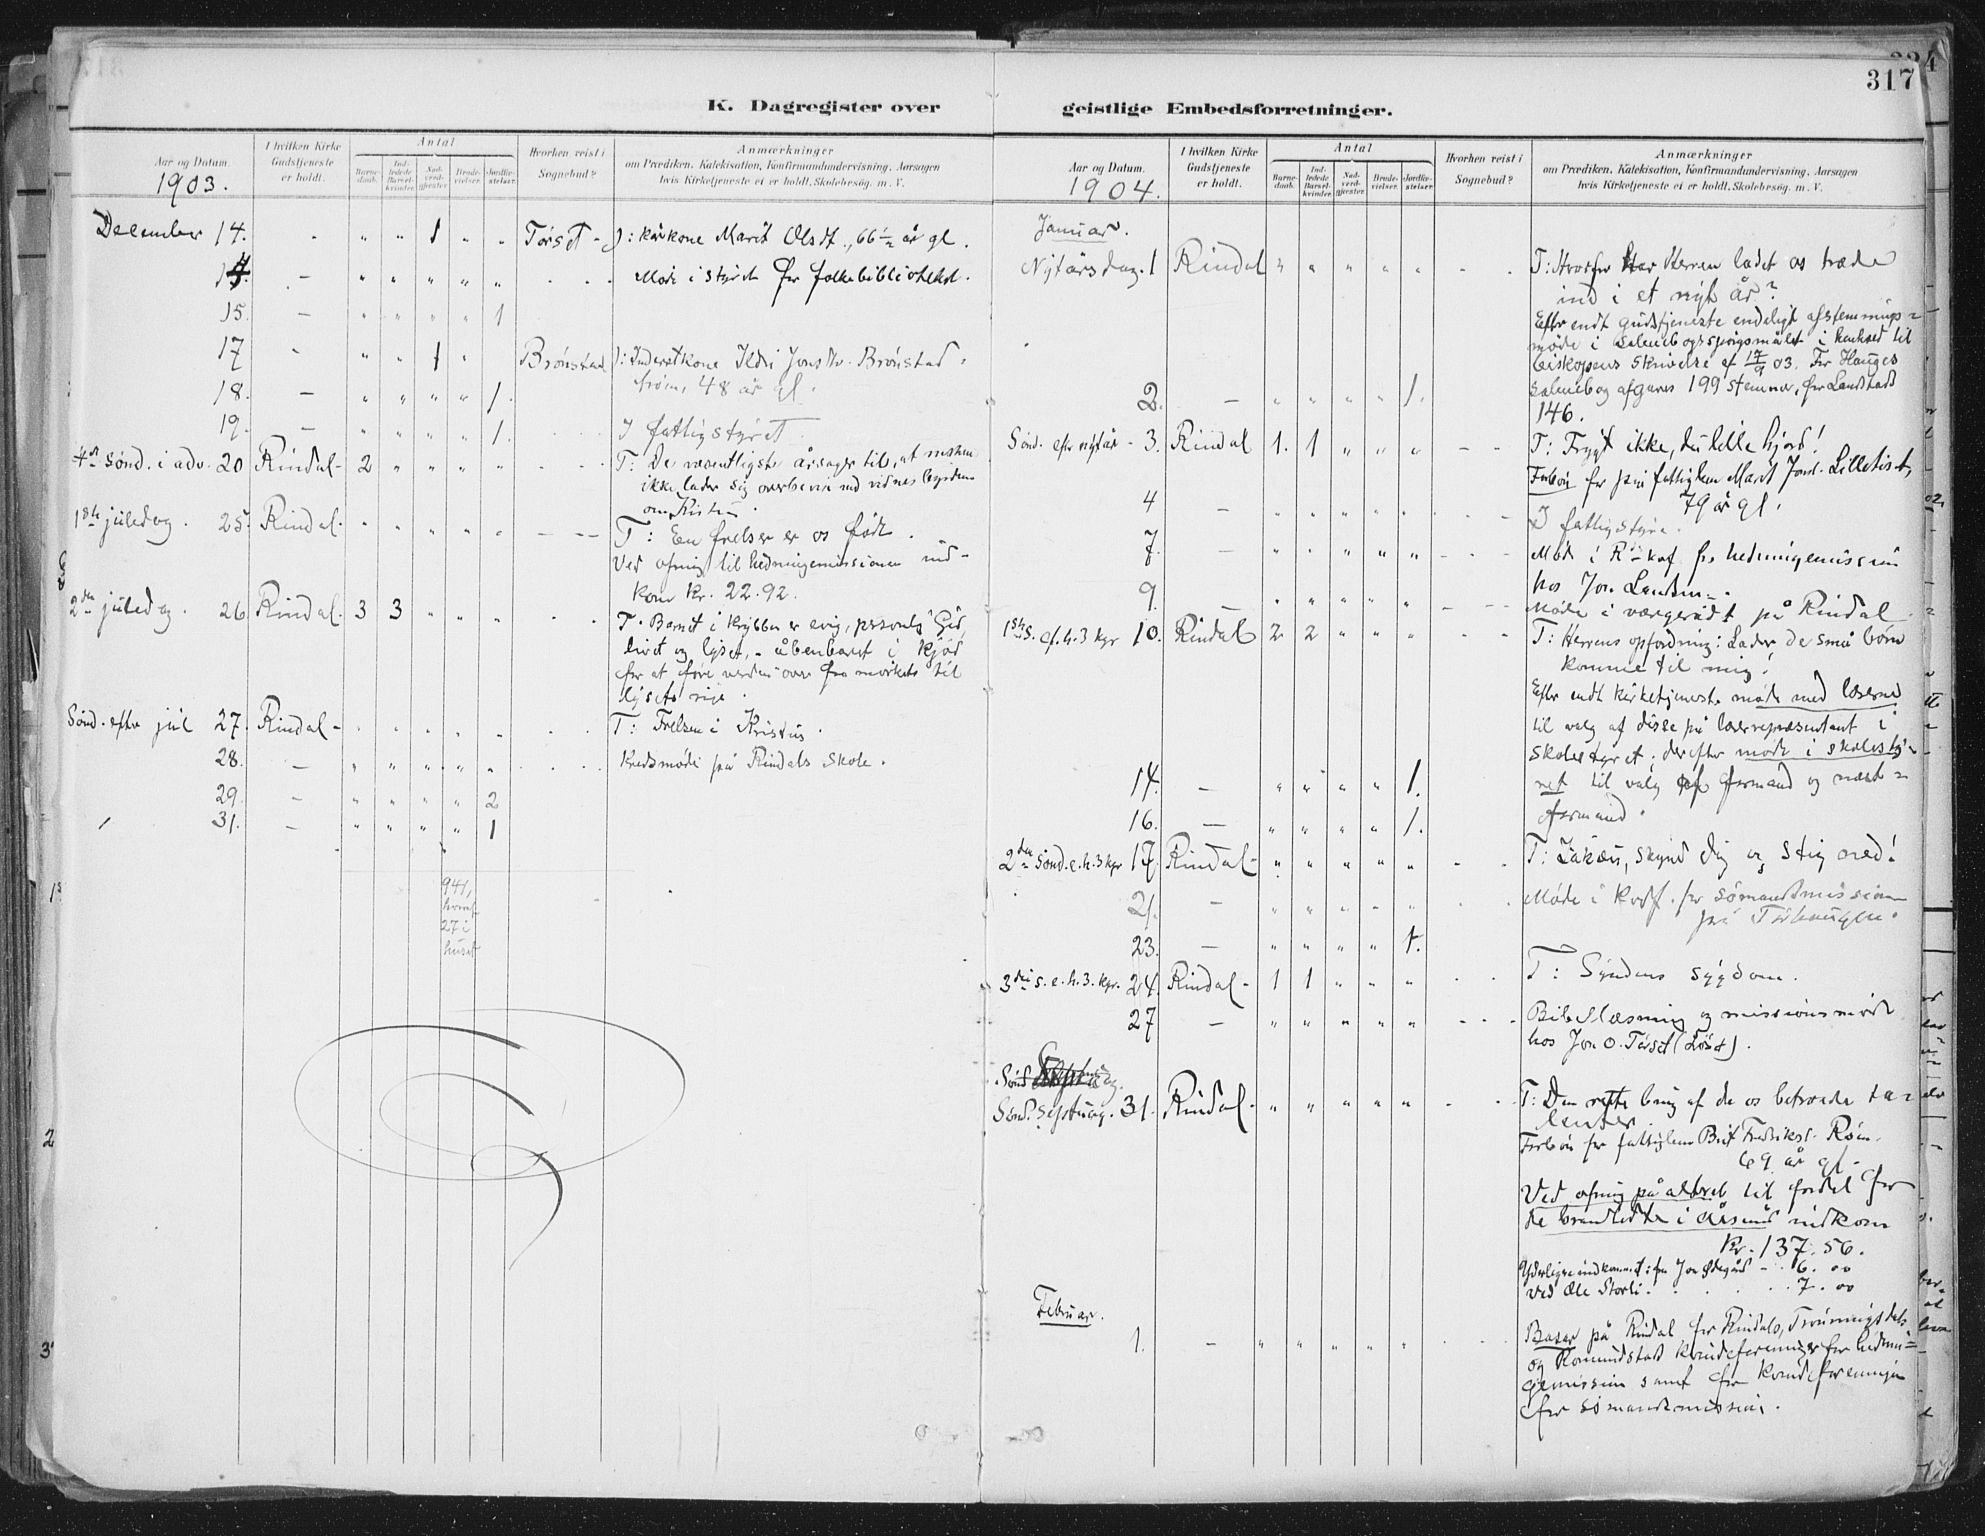 317
K. Dagregister over geistlige Embedsforretninger.
Aar og Datum. 1903.
I hvilken Kirke Gudstjeneste er holdt.
Antal
Barnedaab.
Indledede Barselkvinder.
Nadverdgjester.
Brudevielser.
Jordfæstelser.
Hvorhen reist i Sognebud?
Anmærkninger
om Prædiken, Katekisation, Konfirmandundervisning, Aarsagen
hvis Kirketjeneste ei er holdt, Skolebesøg. m. V.
December 14. - " " 1 " " Tørset - ): kårkone Marit Olsdt., 66½ år gl.
15. - " " " " " Møde i styret for folkebiblioteket.
15. - " " " " 1
17 - " " 1 " Brønstad ): Inderstkone Ildri Jonsdtr. Brønstad
48 år gl.
18. - " " " " 1.
19. - " " " " 1. I fattigstyret
4de Sønd. i adv. 20 Rindal - 2 " " " " T: De væsentligste årsager til, at mennesker
ikke lader sig overbevise ved vidnesbyrdene
om Kristus.
1ste juledag. 25. Rindal. " " " " " T: En frelser er os født.
Ved ofring til hedningemissionen ind-
kom Kr. 22.92.
2den juledag. 26. Rindal. 3 3 " " " T: Barnet i krybben er evig, personlig Gud,
livet og lyset, - åbenbaret i kjød
for at føre verden over fra mørkets til
lysets rige.
Sønd. efter jul 27. Rindal - " " " " " T: Frelsen i Kristus.
28. - " " " " " Kredsmøde på Rindals skole.
29. - " " " " 2
31. - " " " " 1
941,
hvoraf
27 i
huset
Aar og Datum. 1904.
I hvilken Kirke Gudstjeneste er holdt.
Antal
Barnedaab.
Indledede Barselkvinder.
Nadverdgjester.
Brudevielser.
Jordfæstelser.
Hvorhen reist i Sognebud?
Anmærkninger
om Prædiken, Katekisation, Konfirmandundervisning, Aarsagen
hvis Kirketjeneste ei er holdt, Skolebesøg. m. V.
Januar.
Nytårsdag. 1 Rindal " " " " " T: Hvorfor har Herren ladet os træde
ind i et nyt år?
Efter endt gudstjeneste endeligt afstemnings-
møde i salmebogsspørgsmålet i henhold til
biskopens skrivelse af 17/9 03. For Hauges
salmebog afgaves 199 stemmer, for Landstads
146.
2. - " " " " 1.
Sønd. eft. nytår - 3. Rindal 1. 1 " " " T: Frygt ikke, du lille hjord!
Forbøn for fattiglem Marit Jonsd. Lilletiset,
79 år gl.
4 - I fattigstyre.
7. - " " " " " Møde i kvf. for hedningemission
hos Jon Landsem.
9. - " " " " " Møde i værgerådt på Rindal
1ste S. ef. h. 3 kgr 10. Rindal 2 2 " " " T: Herrens opfordring: Lader de små børn
komme til mig!
Efter endt kirketjeneste møde med læserne
til valg af disse på lærerrepresentant i
skolestyret; derefter møde i skolesty-
ret til valg af formand og næst-
formand.
14. - " " " " 1.
16. - " " " " 1.
2den Sønd. e. h. 3 kgr 17. Rindal - " " " " " T: Zakæus, skynd dig og stig ned!
21. - " " " " " Møde i kvdf. for sømandsmission
på
23. - " " " " 1.
3die s. e. h. 3. kgr. 24. Rindal - 1 1 " " " T: Syndens sygdom.
27 - " " " " " Bibellæsning og missionsmøde
hos Jon O. Tørset (Løset).
Sønd. septuag. 31. Rindal - " " " " " T: Den rette brug af de os betroede ta-
lenter.
Forbøn for fattiglem Brit Fredriksd. Røen.
69 år gl.
Ved ofring på alteret til fordel for
de brandlidte i Ålesund indkom
Kr. 137.56.
Yderligere indkommet: fra Jon Ødegård - 6.00
ved Ole Storli. 7.00
Februar.
1. - " " " " " Basar på Rindal for Rindals, Trønningsdals
og Romundstad kvindeforeninger for hednin-
gemission samt for kvindeforeningen
for sømandsmission.